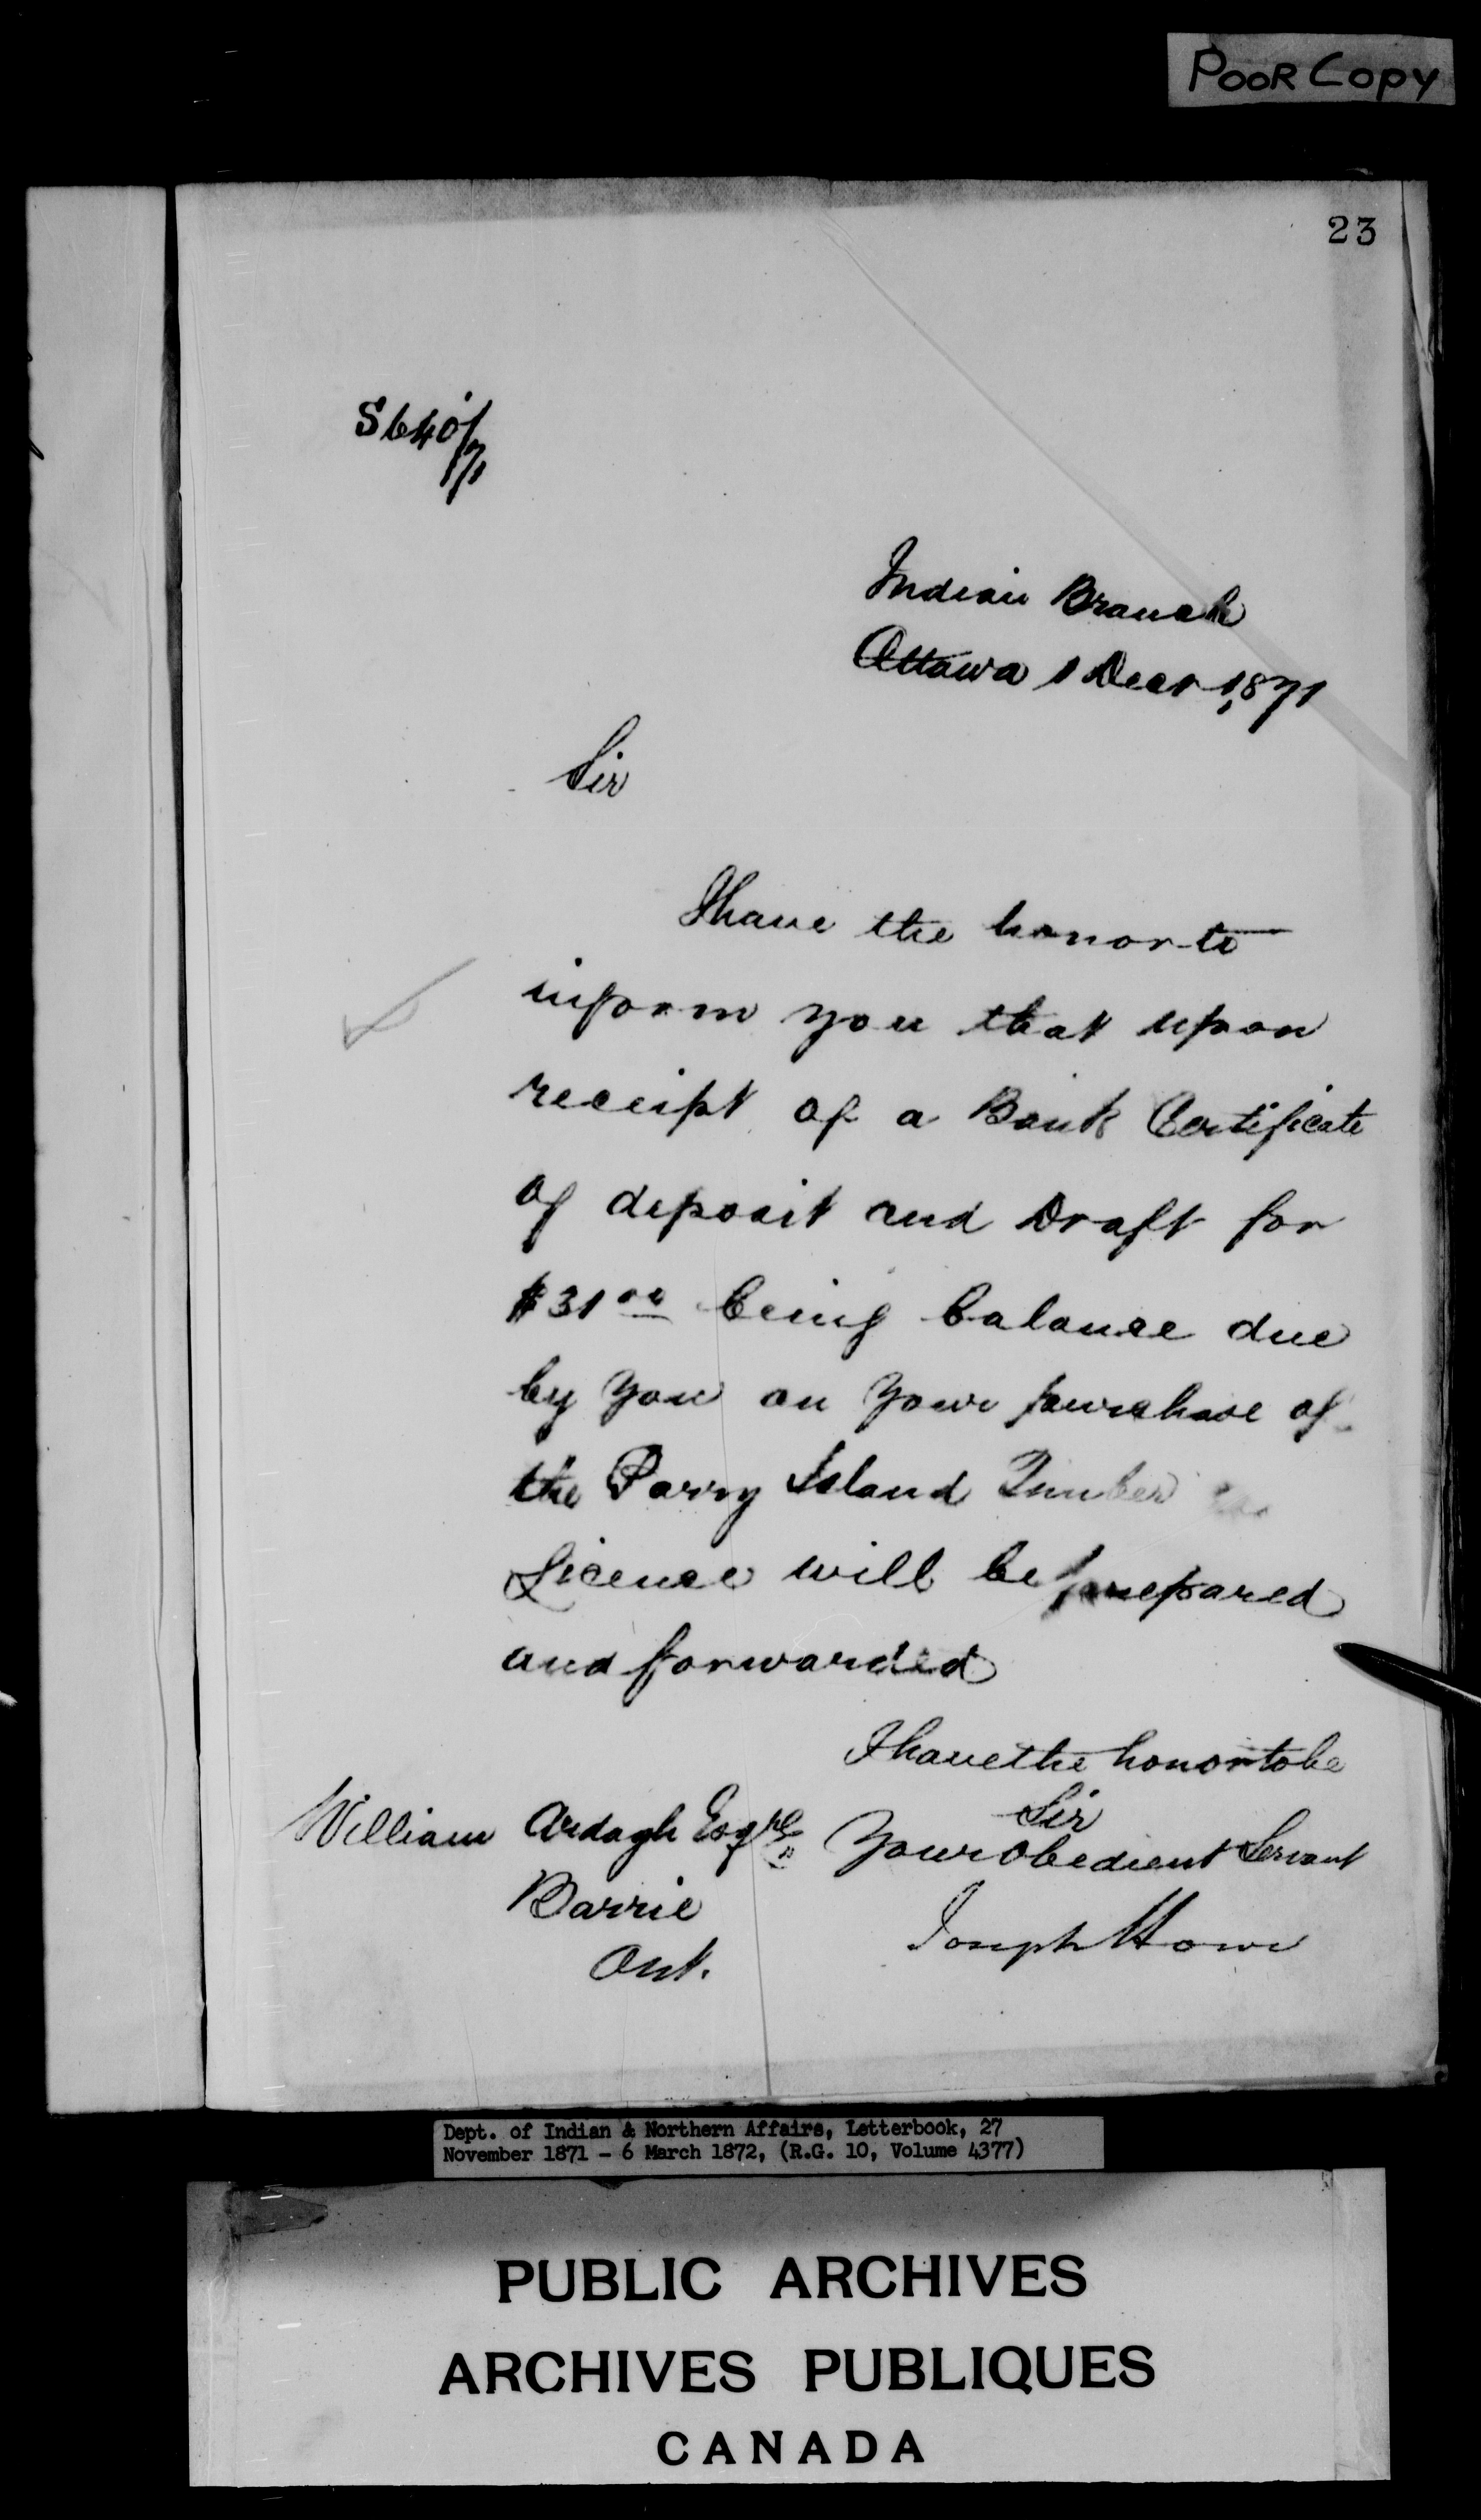 POOR COPY
23
S640/71
Indian Branch
Ottawa 1 Decr 1871
Sir
I have the honor to
inform you that upon
receipt of a Bank Certificate
of deposit and Draft for
$31.00 being balance due
by you on your purchase of
the Parry Island Timber
License will be prepared
and forwarded
I have the honor to be
Sir
Your obedient Servant
Joseph Howe
William Ardagh Esqre
Barrie
Ont.
Dept. of Indian & Northern Affairs, Letterbook, 27
November 1871 - 6 March 1872, (R.G. 10, Volume 4377)
PUBLIC ARCHIVES
ARCHIVES PUBLIQUES
CANADA